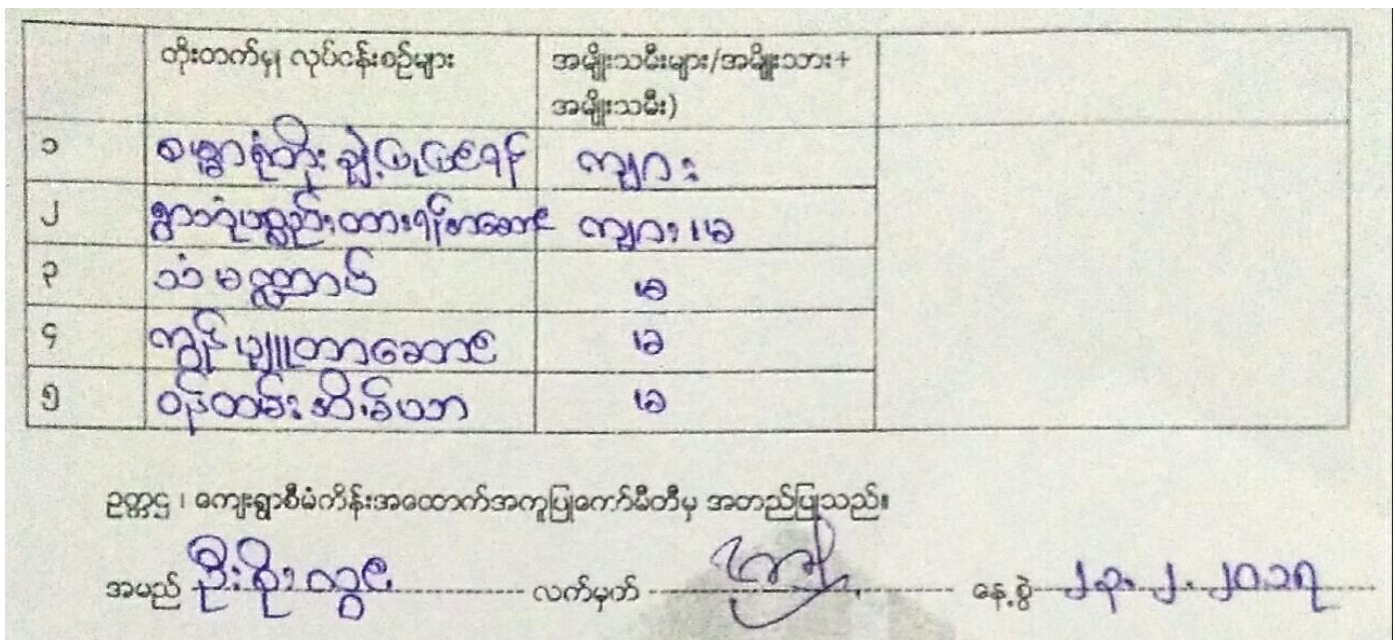 တိုးတက်မှု လုပ်ငန်းစဉ်များ အမျိုးသမီးများ/အမျိုးသား+
အမျိုးသမီး)
၁ ကျား
၂ ကျား ၊ မ
၃ သံမဏ္ဍာပ် ၊မ
၄ ကွန်ပျူတာဆောင် ၊မ
၅ ဝန်ထမ်းအိမ်ယာ ၊မ
ဥက္ကဋ္ဌ ၊ ကျေးရွာစီမံကိန်းအထောက်အကူပြုကော်မီတီမှ အတည်ပြုသည်။
အမည် ဦးစိုးလွင် လက်မှတ် နေ့စွဲ ၂၃.၂.၂၀၁၇